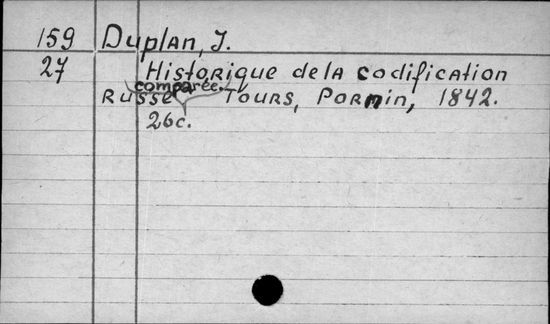 159 Duplan, J.
27 Historique de la codification
comparée.
Russe Tours, Pormin, 1842.
26c.